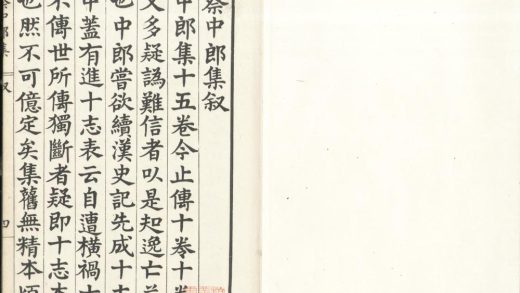 蔡中郎集叙
中郎集十五卷今止傳十卷十卷
又多疑譌難信者以是知逸亡益
也中郎嘗欲續漢史記先成十
中蓋有進十志表云自遭橫禍十
不傳世所傳獨斷者疑即十志本
也然不可億定矣集舊無精本頃
蔡中郎集 叙 四